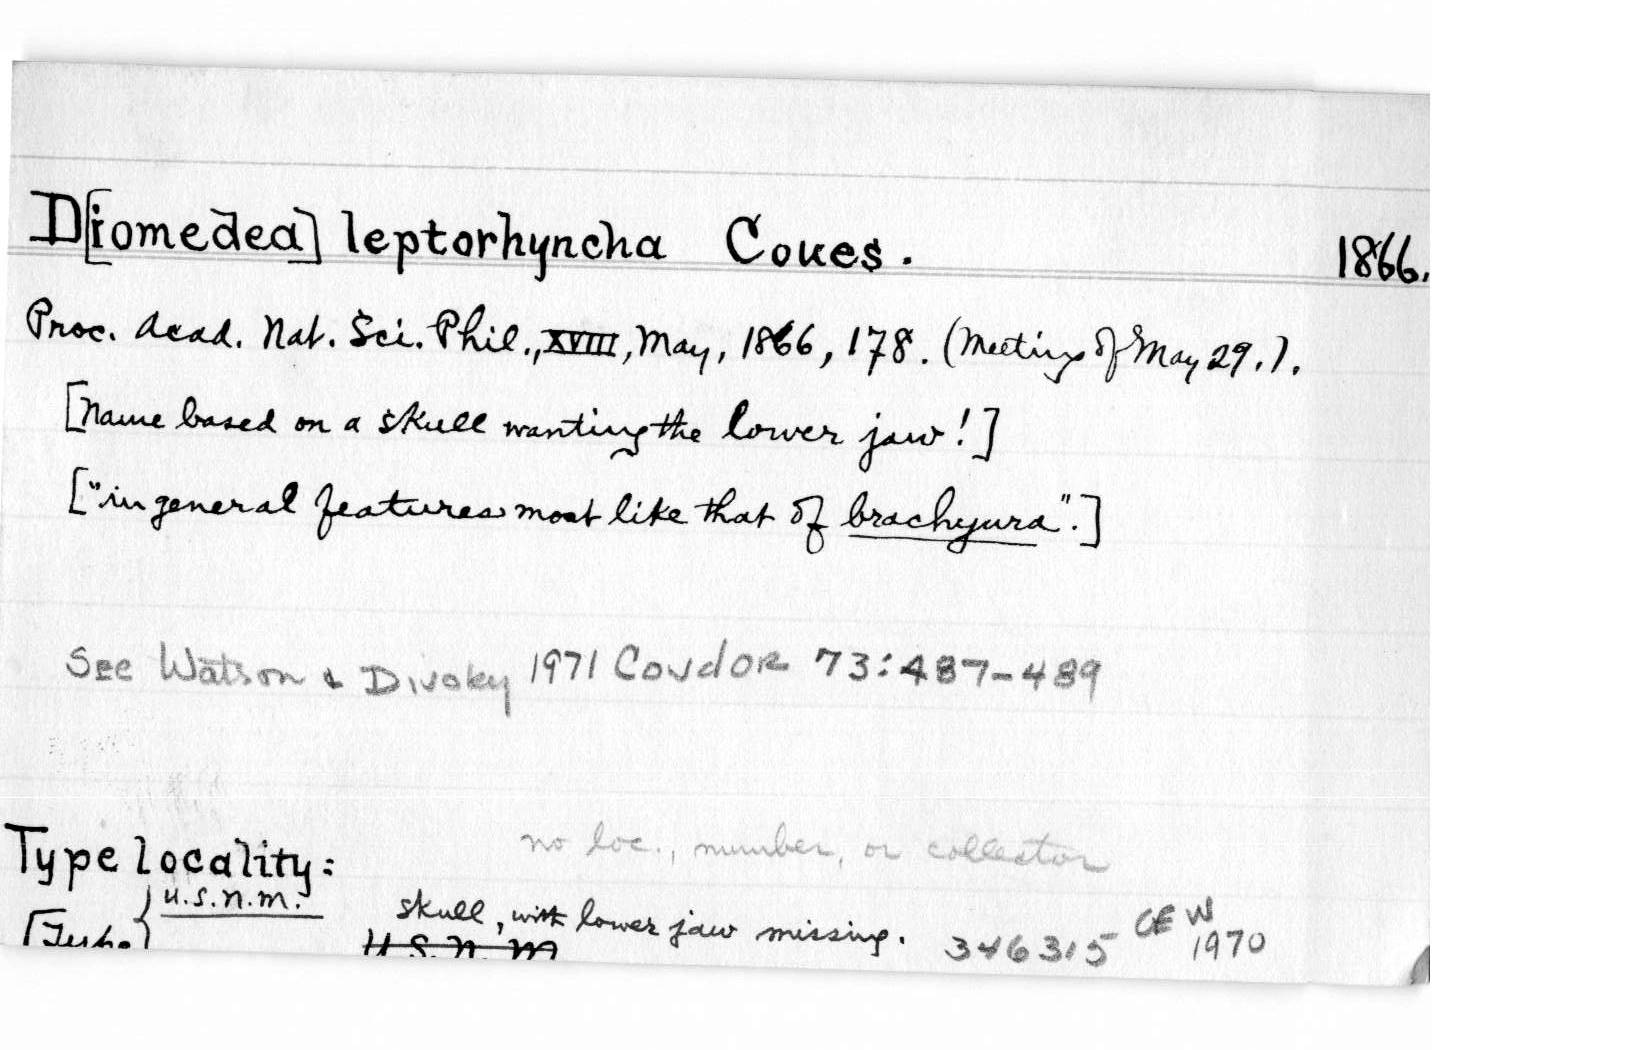 D[iomedea] leptorhyncha Coues. 1866.
Proc. Acad. Nat. Sci. Phil., XVIII, May, 1866, 178. (Meeting of May 29.).
[Name based on a skull wanting the lower jaw!]
["in general features most like that of brachyura".]
See Watson & Divoky 1971 Condor 73:487-489
Type locality: no loc., number, or collector
U.S.N.M. skull, with lower jaw missing. 346315 CEW
[Type U.S.N.M 1970